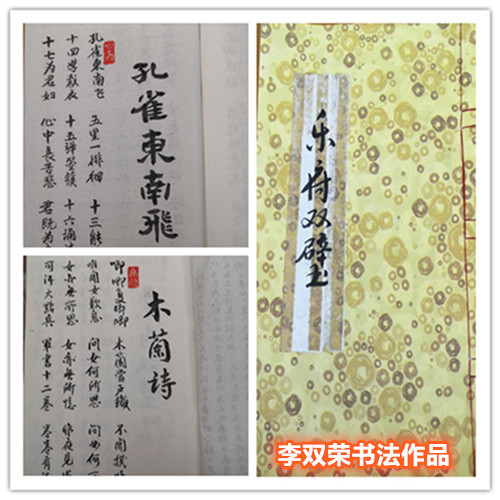 孔雀東南飛
孔雀東南飞 五里一徘徊 十三能
十四學裁衣 十五彈箜篌 十六誦
十七为君妇 心中長苦悲 君既为
木蘭詩
唧唧復唧唧 木蘭當户織 不聞機
唯聞女歎息 問女何所思 問女何
女亦無所思 女亦無所憶 昨夜見
可汗大點兵 軍書十二卷 卷卷有
乐府双璧
李双荣书法作品